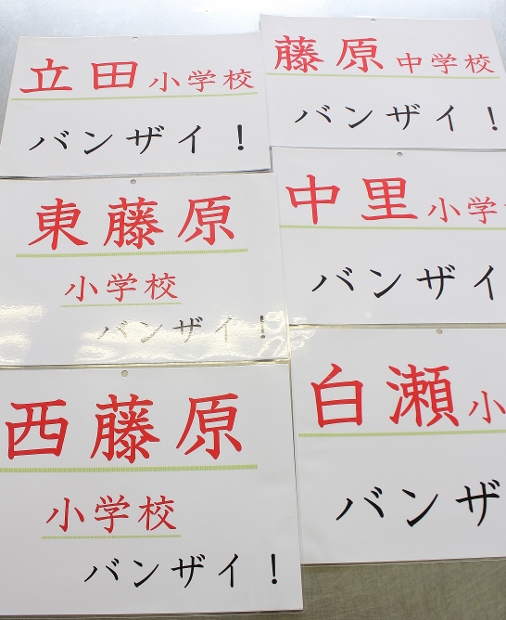 立田小学校
バンザイ！
藤原中学校
バンザイ！
東藤原
小学校
バンザイ！
中里小学
バンザイ
西藤原
小学校
バンザイ！
白瀬小
バンザ